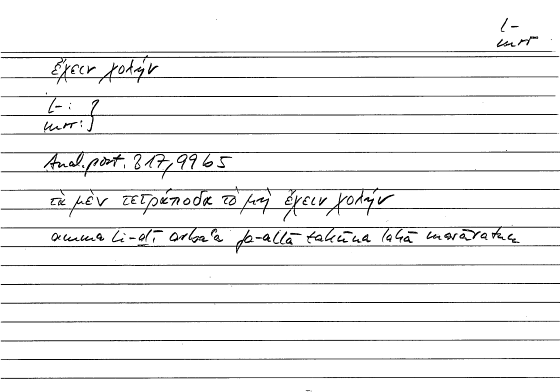 l-
mrr
ἔχειν χολήν
l-: }
mrr: }
Anal. post. B 17, 99 b5
τὰ μὲν τετράποδα τὸ μὴ ἔχειν χολήν
amma li-ḏī arbaʿa fa-allā takūna lahā marāratun